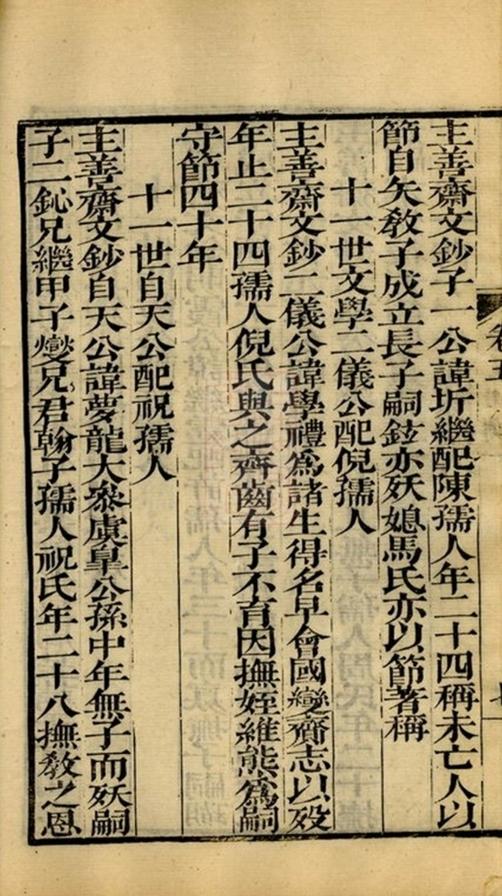 主善齋文鈔子一公諱圻繼配陳孺人年二十四稱未亡人以
節自矢敎子成立長子嗣鉉亦殀媳馬氏亦以節著稱
十一世文學二儀公配倪孺人
主善齋文鈔二儀公諱學禮爲諸生得名早會國變齎志以歿
年止二十四孺人倪氏與之齊齒有子不育因撫姪維熊爲嗣
守節四十年
十一世自天公配祝孺人
主善齋文鈔自天公諱夢龍大參虞臯公孫中年無子而殀嗣
子二鈊兄繼甲子燮兄君翰子孺人祝氏年二十八撫敎之恩